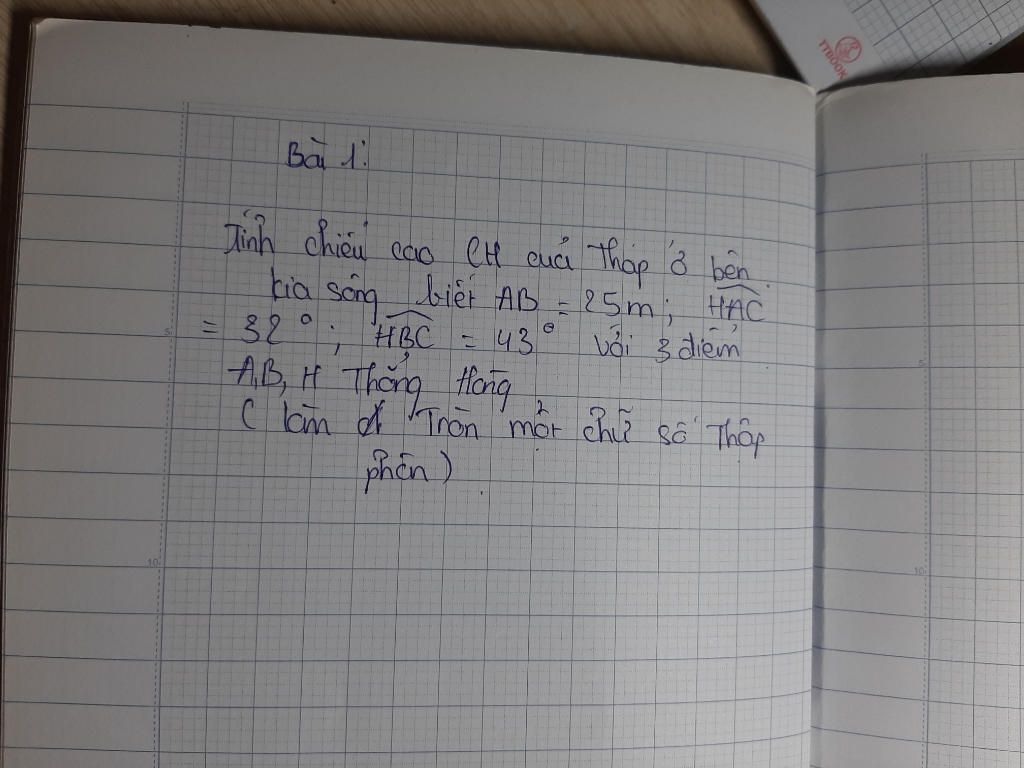 Bài 1:
Tính chiều cao CH của tháp ở bên
kia sông biết AB = 25m; HAC
= 32°; HBC = 43° với 3 điểm
A,B, H Thẳng Hàng
( làm Tròn một chữ số Thập
phân)
TTBOOK
5
10
5
10